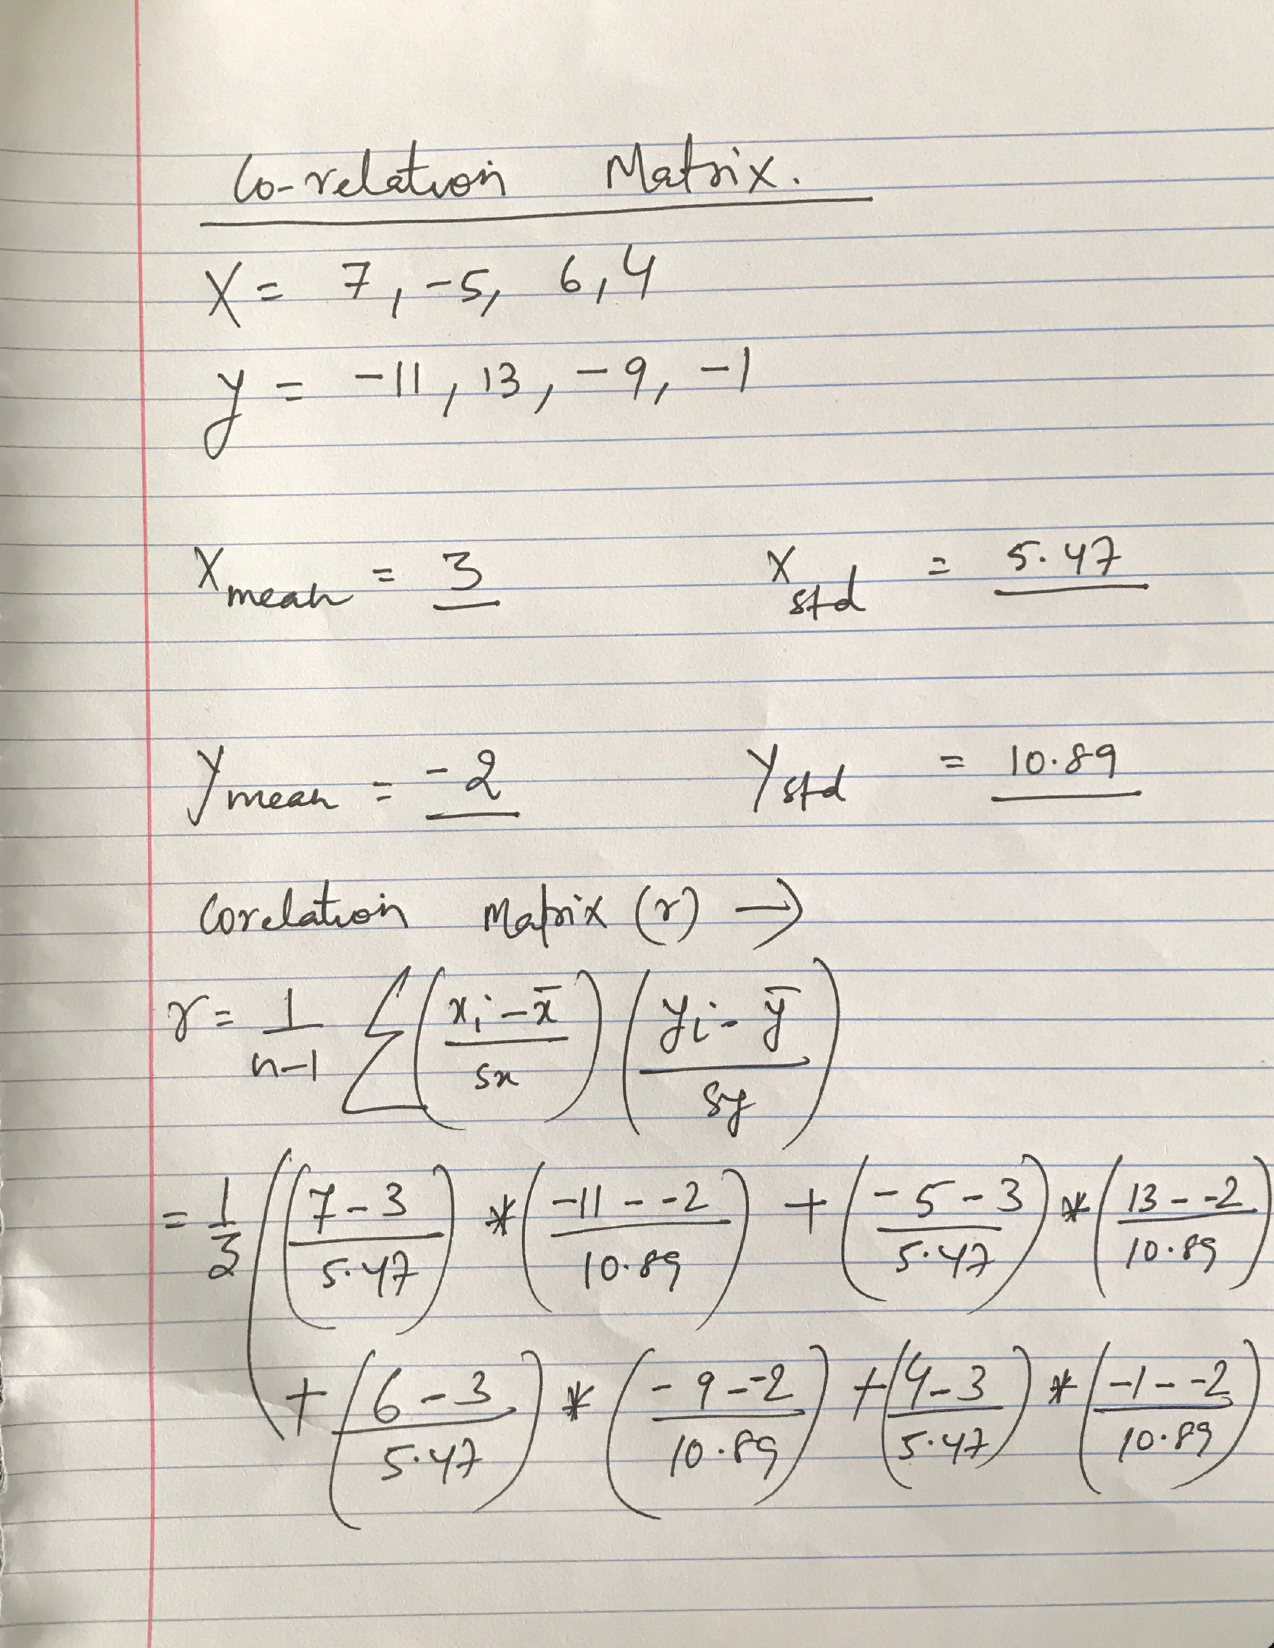 Co-relation Matrix.
X = 7, -5, 6, 4
y = -11, 13, -9, -1
X mean = 3 X std = 5.47
y mean = -2 Y std = 10.89
Corelation Matrix (r) →
r = 1/(n-1) Σ ((xi - x̄)/sx) ((yi - ȳ)/sy)
= 1/3 ( ((7-3)/5.47) * ((-11--2)/10.89) + ((-5-3)/5.47) * ((13--2)/10.89)
+ ((6-3)/5.47) * ((-9--2)/10.89) + ((4-3)/5.47) * ((-1--2)/10.89)